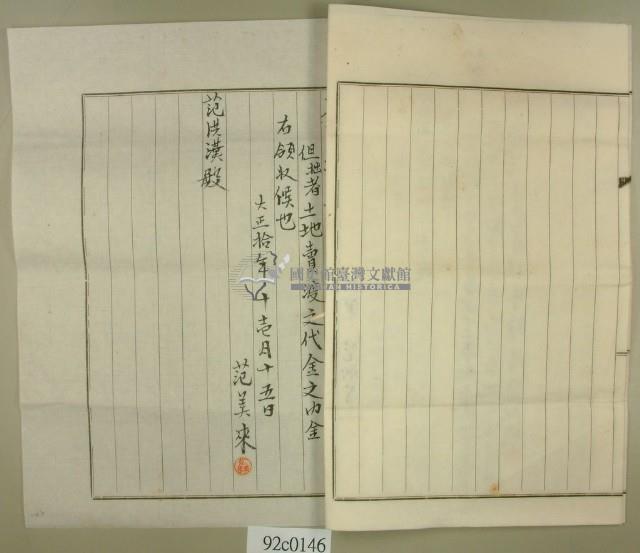 但拙者土地賣渡之代金之内金
右領收候也
大正拾年十壱月十五日
范美來
范洪漢殿
國史館臺灣文獻館
TAIWAN HISTORICA
92c0146